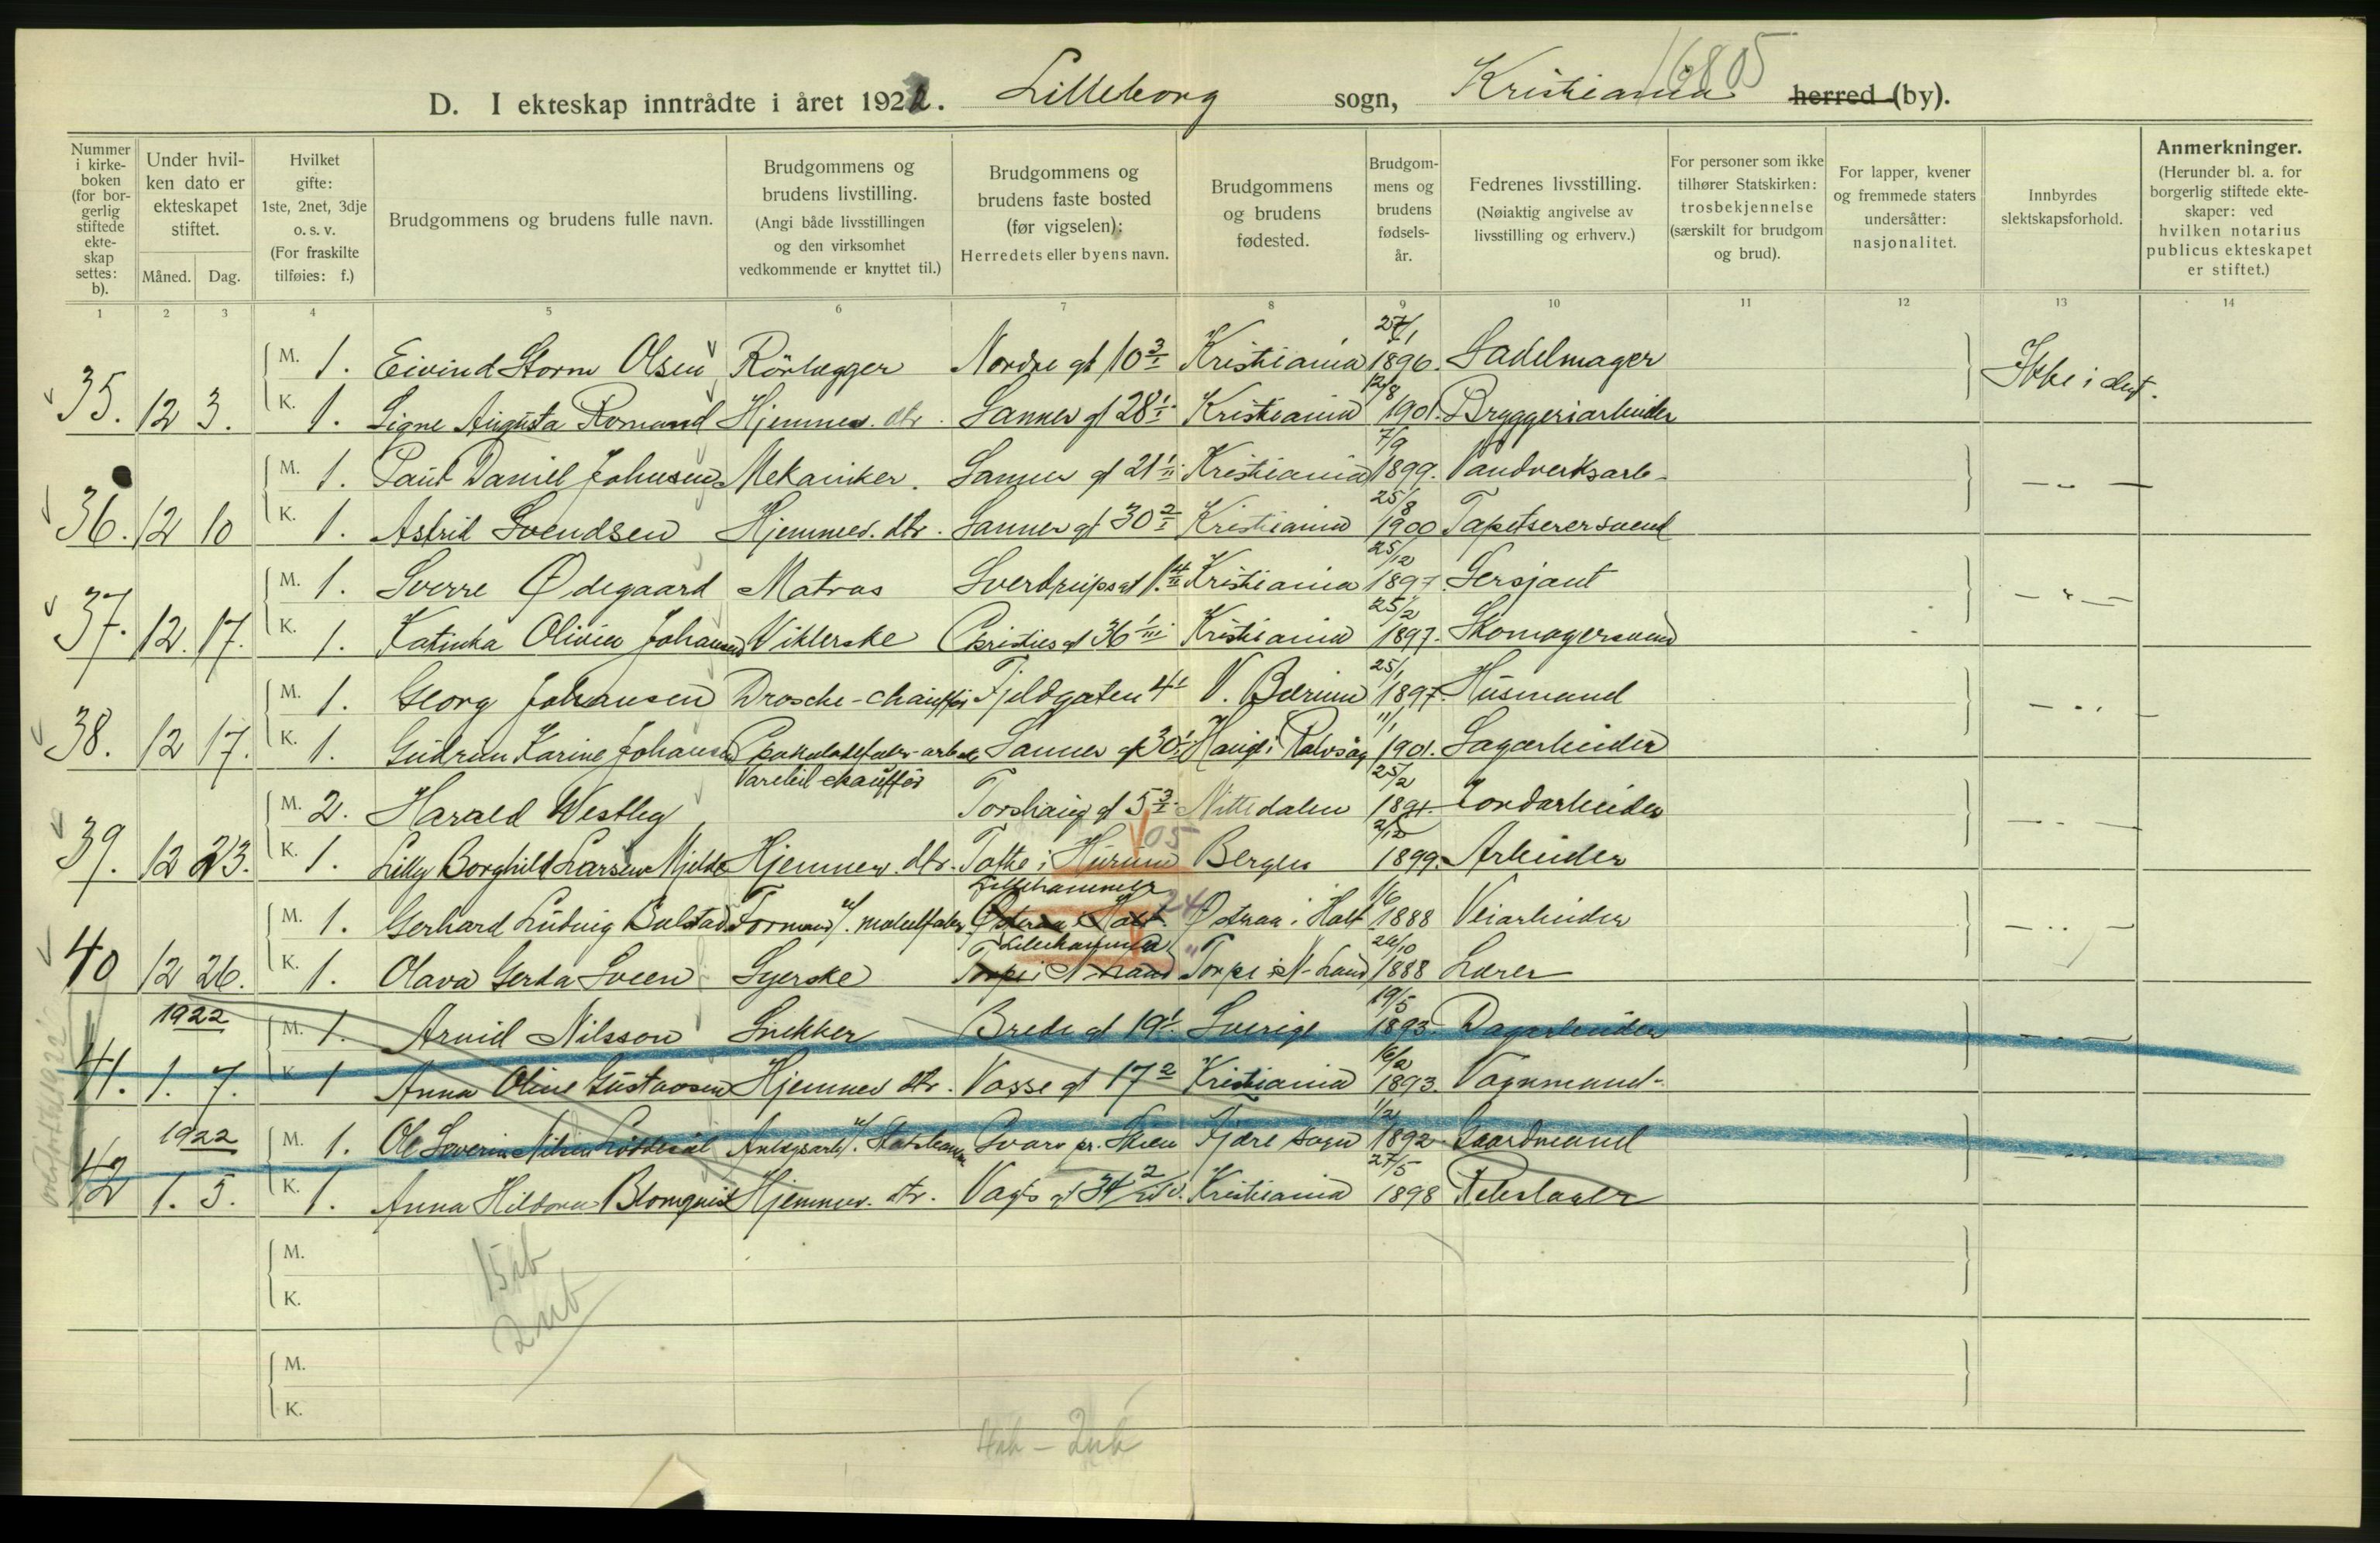 16805
D. I ekteskap inntrådte i året 1922. Lilleborg sogn, Kristiania herred (by).
Nummer i kirkeboken (for borgerlig stiftede ekteskap settes: b).
Under hvilken dato er ekteskapet stiftet.
Måned. Dag.
Hvilket gifte: 1ste, 2net, 3dje o. s. v. (For fraskilte tilføies: f.)
Brudgommens og brudens fulle navn.
Brudgommens og brudens livstilling. (Angi både livsstillingen og den virksomhet vedkommende er knyttet til.)
Brudgommens og brudens faste bosted (før vigselen): Herredets eller byens navn.
Brudgommens og brudens fødested.
Brudgommens og brudens fødselsår.
Fedrenes livsstilling. (Nøiaktig angivelse av livsstilling og erhverv.)
For personer som ikke tilhører Statskirken: trosbekjennelse (særskilt for brudgom og brud).
For lapper, kvener og fremmede staters undersåtter: nasjonalitet.
Innbyrdes slektskapsforhold.
Anmerkninger. (Herunder bl. a. for borgerlig stiftede ekteskaper: ved hvilken notarius publicus ekteskapet er stiftet.)
1 2 3 4 5 6 7 8 9 10 11 12 13 14
27/1
M. 1. Eivind Storm Olsen Rörlægger Nordre gt 10 3/I Kristiania 1896. Sadelmager
35. 12 3. Ikke i slegt.
12/8
K. 1. Signe Augusta Romand Hjemmev. dtr. Sanner gt 28 1/I Kristiania 1901. Bryggeriarbeider
7/9
M. 1. Paul Daniel Johnsen Mekaniker. Sanner gt 21 1/III Kristiania 1899. Vandverksarb.
36. 12 10 — " —
25/8
K. 1. Astrid Svendsen Hjemmev. dtr. Sanner gt 30 2/I Kristiania 1900 Tapetserersvend
25/12
M. 1. Sverre Ødegaard Matros Sverdrups gt 1. 4/II Kristiania 1897. Sersjant
37. 12. 17. — " —
25/2
K. 1. Katinka Olivia Johansen Viklerske Christies gt 36 1/III Kristiania 1897. Skomagersvend
25/1
M. 1. Georg Johansen Drosche-chauffør Fjeldgaten 4 1 V. Bærum 1897. Husmand
38. 12 17. — " —
11/1
K. 1. Gudrun Karine Johansen Sanner gt 30 1 Haug i Rolvsøy 1901. Sagarbeider
Varebil chauffør
25/2
M. 2. Harald Westby Torshaug gt 5 3/I Nittedalen 1894. Jordarbeider
39. 12 23. — " —
05
2/12
K. 1. Lilly Borghild Larsen Mjelde Hjemmev. dtr. Tofte i Hurum Bergen 1899. Arbeider
Lillehammer
1/6
M. 1. Gerhard Ludvig Bulstad Formand v/. Østeraa i Holt 24 Østeraa i Holt 1888 Veiarbeider
40 12 26. — " —
Lillehammer
24/10
K. 1. Olava Gerda Sveen Syerske Torpe i N Land Torpe i N-Land 1888 Lærer
1922
19/5
M. 1. Arvid Nilsson Snekker Brede gt 19 1 Sverige 1893. Dagarbeider
41. 1. 7. — " —
16/2
K 1 Anna Oline Gustavsen Hjemmev dtr. Vosse gt 17 2 Kristiania 1893. Vognmand.
1922
1/2
M. 1. Ole Severin Nilsen Anlegsarb. v/. Gvarv pr. Skien Fjære sogn 1892 Gaardmand
42 1. 5. — " —
27/5
K. 1. Anna Hildona Blomquist Hjemmev. dtr. Vogts gt 34 2 Kristiania 1898 Rebslager
overført til 1922
15 ib
2 ub
M.
K.
M.
K.
4 ib – 2 ub